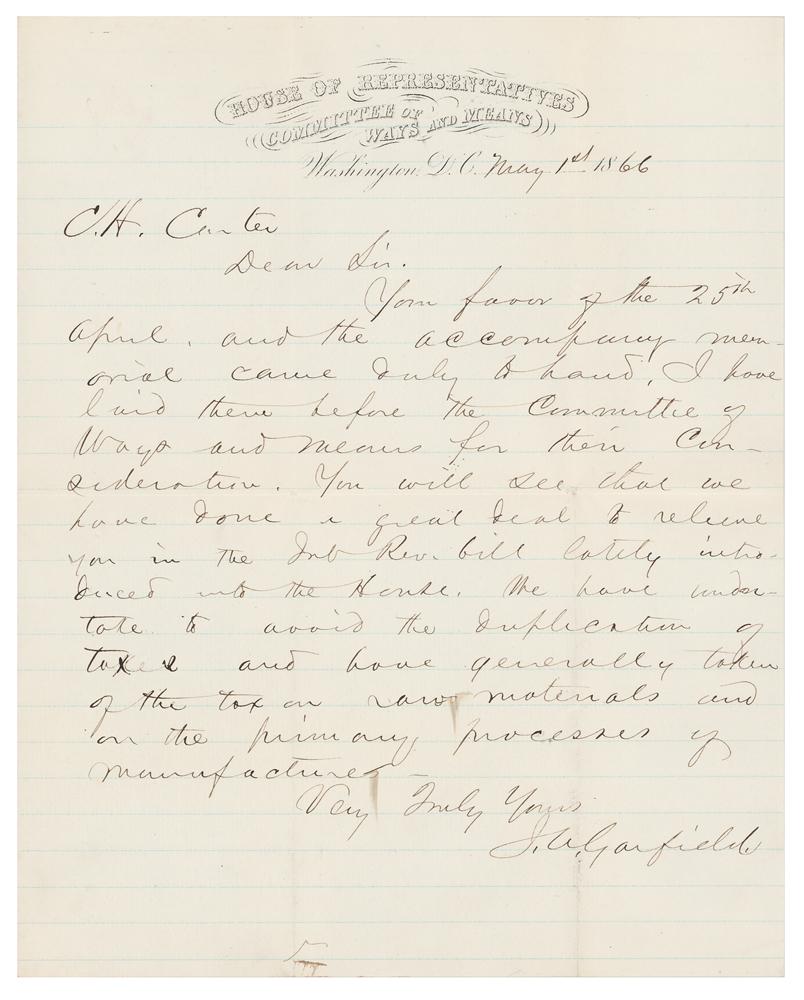 HOUSE OF REPRESENTATIVES
COMMITTEE OF
WAYS AND MEANS
Washington, D.C. May 1st 1866
C.H. Carter
Dear Sir.
Your favor of the 25th
April, and the accompany mem-
orial came duly to hand, I have
laid them before the Committee of
Ways and means for their Con-
sideration. You will see that we
have done a great deal to relieve
you in the Int Rev. bill lately intro-
duced into the House. We have under-
take to avoid the duplication of
taxes and have generally taken
of the tax on raw materials and
on the primary processes of
manufactures –
Very Truly Yours
J.A. Garfield